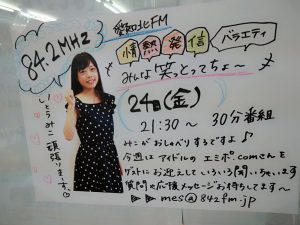 84.2MHz
愛知北FM
情熱発信
バラエティ
みんな笑っとってちょ〜
24日(金)
21:30〜 30分番組
みこがおしゃべりするですよ♪
今週はアイドルのエミポ.comさんを
ゲストにお迎えしていろいろ聞いちゃいます
質問や応援メッセージお待ちしてます〜
▶▶ mes@842fm.jp
いとうみこ 頑張りまーす♡